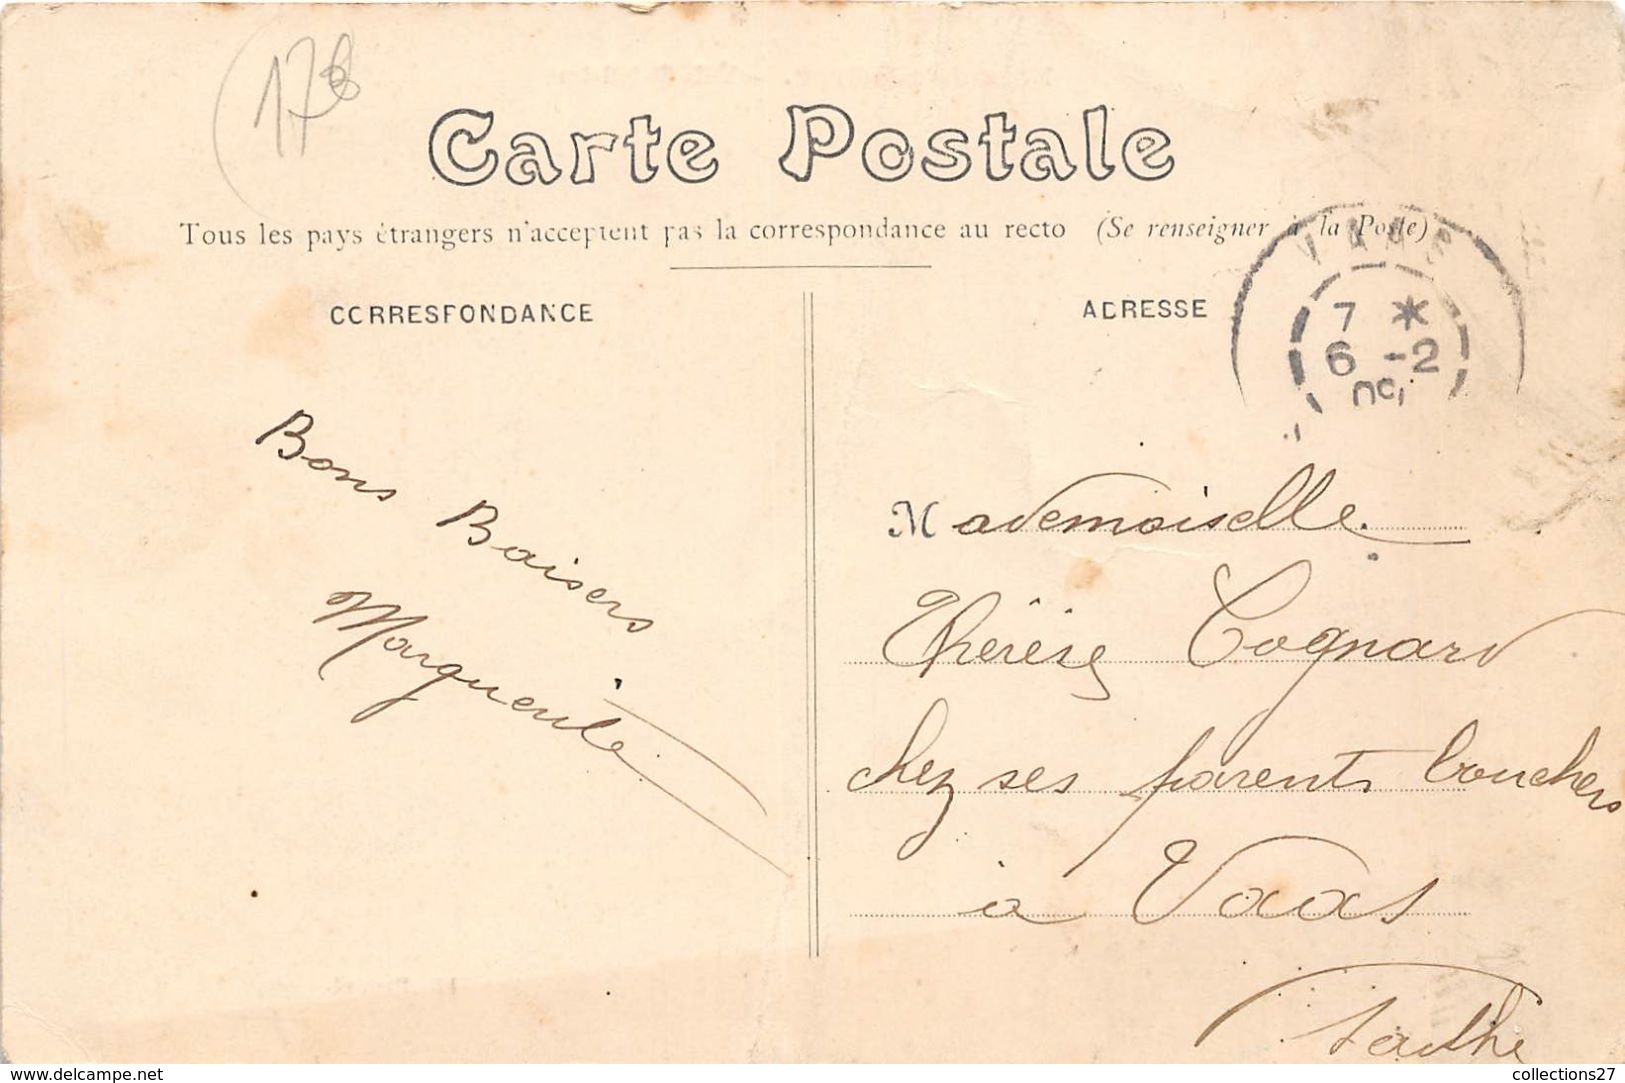 178
Carte Postale
Tous les pays étrangers n'acceptent pas la correspondance au recto (Se renseigner à la Poste)
CORRESPONDANCE
ADRESSE
VAAS
7 *
6 -2
Bons Baisers
Marguerite
Mademoiselle
Thérèse Cognard
chez ses parents bouchers
à Vaas
Sarthe
collections27
www.delcampe.net